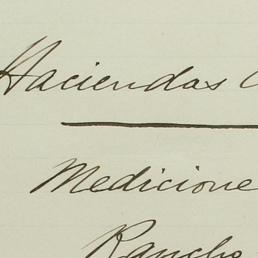 Haciendas
Medicione
Rancho